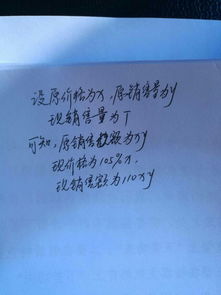 设原价格为x,原销售量为y
现销售量为T
可知,原销售额为xy
现价格为105%x,
现销售额为110xy